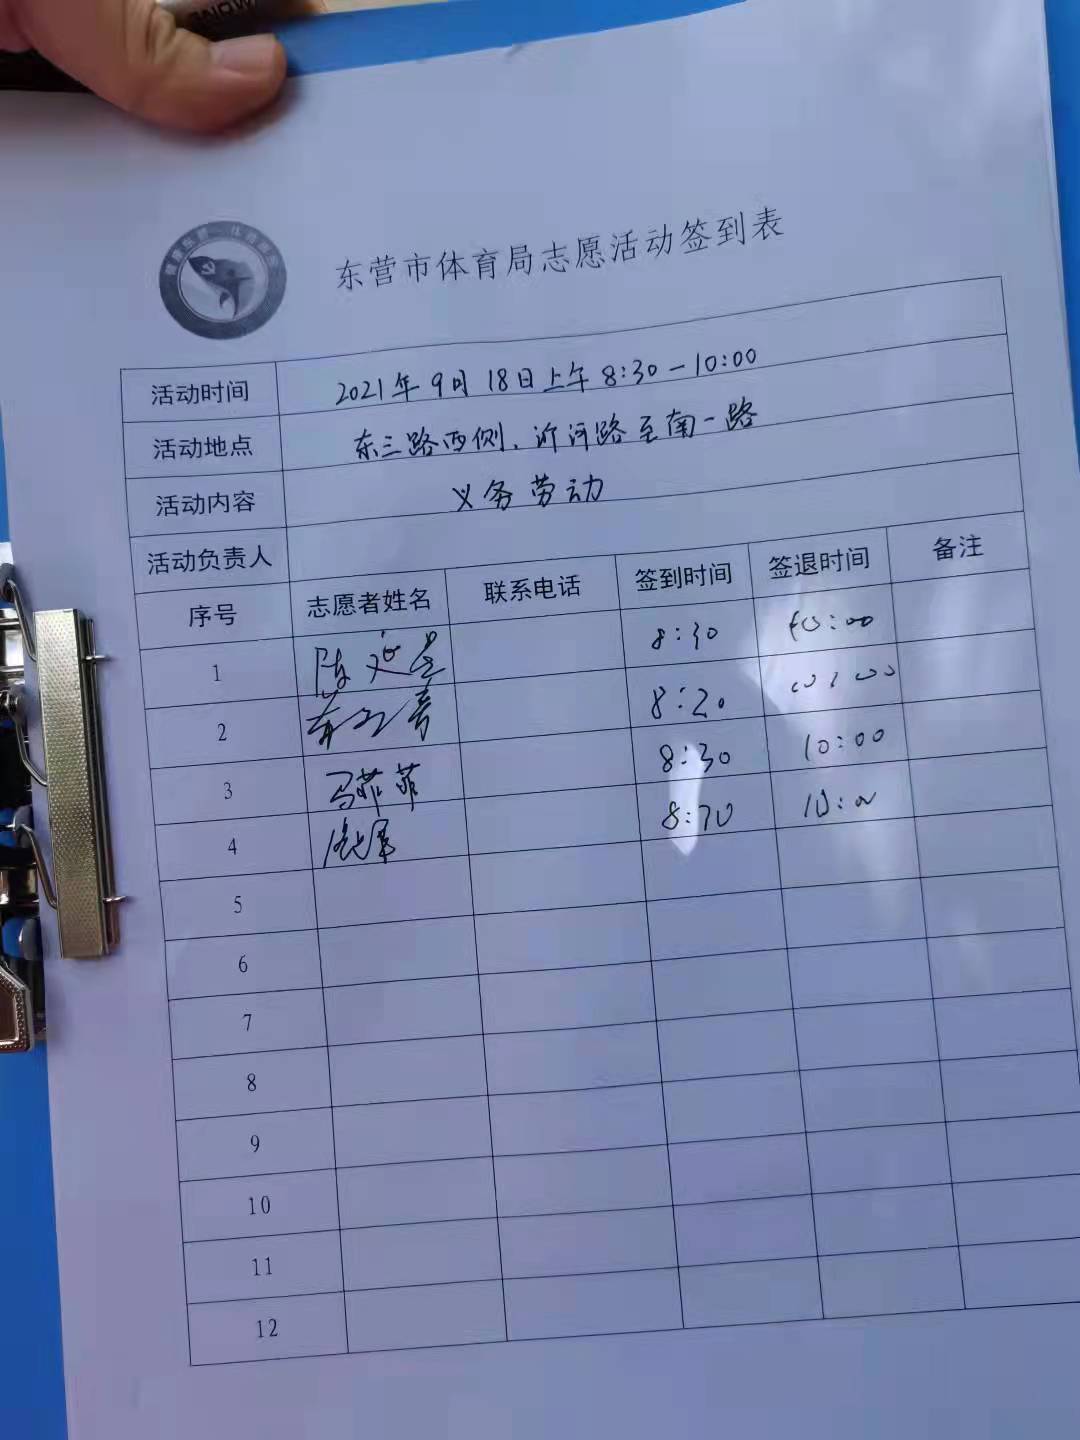 东营市体育局志愿活动签到表
活动时间 2021年9月18日上午8:30-10:00
活动地点 东三路西侧、沂河路至南一路
活动内容 义务劳动
活动负责人
序号 志愿者姓名 联系电话 签到时间 签退时间 备注
1 陈 8:30 10:00
2 8:20 10:00
3 马菲菲 8:30 10:00
4 8:30
5
6
7
8
9
10
11
12